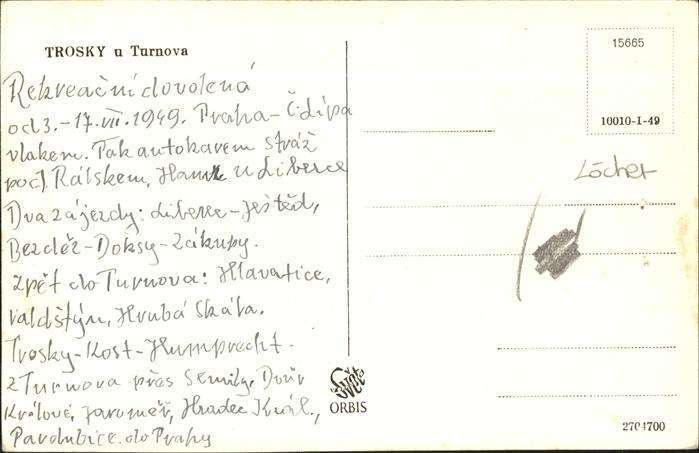 TROSKY u Turnova
Rekreační dovolená
od 3.-17.VII.1949. Praha-Č.Lípa
vlakem. Pak autokarem Stráž
pod Rálskem, Hamr u Liberce
Dva zájezdy: Liberec-Ještěd,
Bezděz-Doksy-Zákupy.
Zpět do Turnova: Hlavatice,
Valdštýn, Hrubá Skála.
Trosky-Kost-Humprecht.
Z Turnova přes Semily, Dvůr
Králové, Jaroměř, Hradec Král.,
Pardubice do Prahy
15665
10010-I-49
Löcher
Svět
ORBIS
2704700